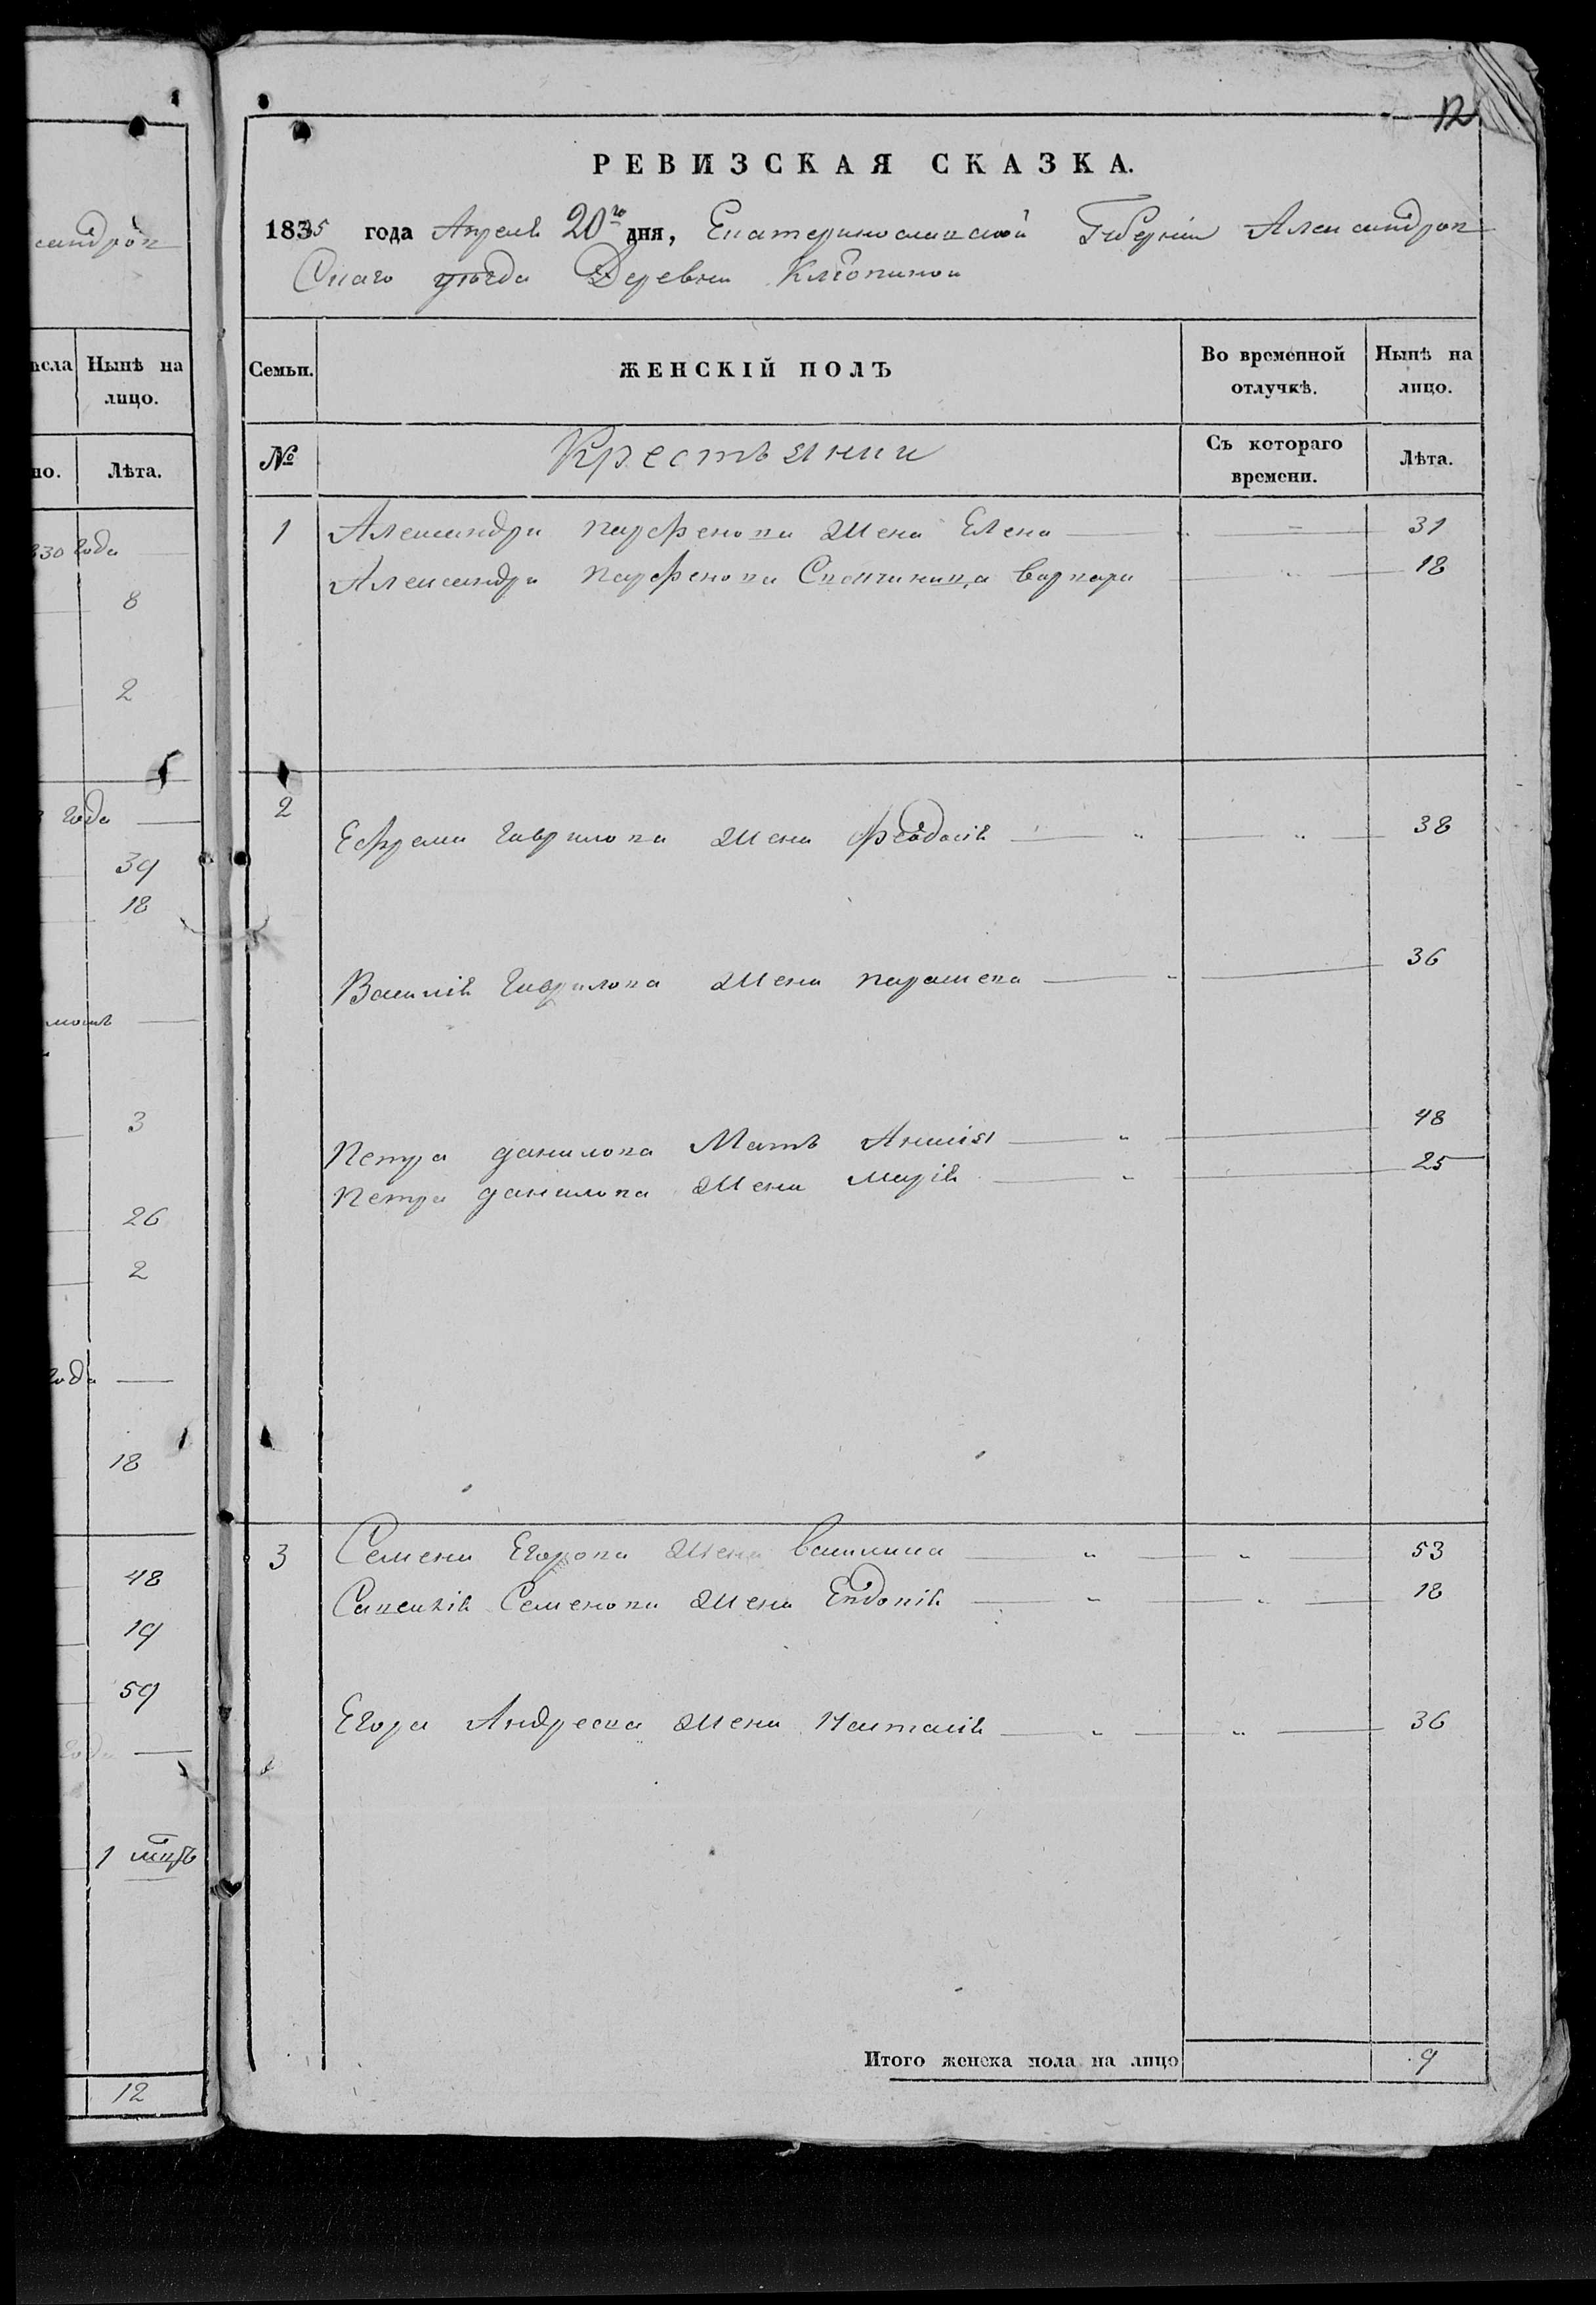 сандров
исла
Нынѣ на
лицо.
но.
Лѣта.
830 года
8
2
года
39
18
3
26
2
года
18
48
19
59
года
1
12
12
РЕВИЗСКАЯ СКАЗКА.
1835 года Апреля 20го дня, Екатеринославской Губернии Александров
Скаго уѣзда Деревни
Семьи.
ЖЕНСКІЙ ПОЛЪ
Во временной
отлучкѣ.
Нынѣ на
лицо.
№
Крестьянки
Съ котораго
времени.
Лѣта.
1 Александра Парфенова Жена Елена 31
Александра Парфенова варвара 18
2
Ефрема Гаврилова Жена Феодосія 38
Василія Гаврилова Жена парасева 36
Петра данилова Мать Анисія 48
Петра данилова Жена Марія 25
3 Семена Егорова Жена василиса 53
Савелія Семенова Жена Евдокія 18
Егора Андреева Жена Наталія 36
Итого женска пола на лицо 9